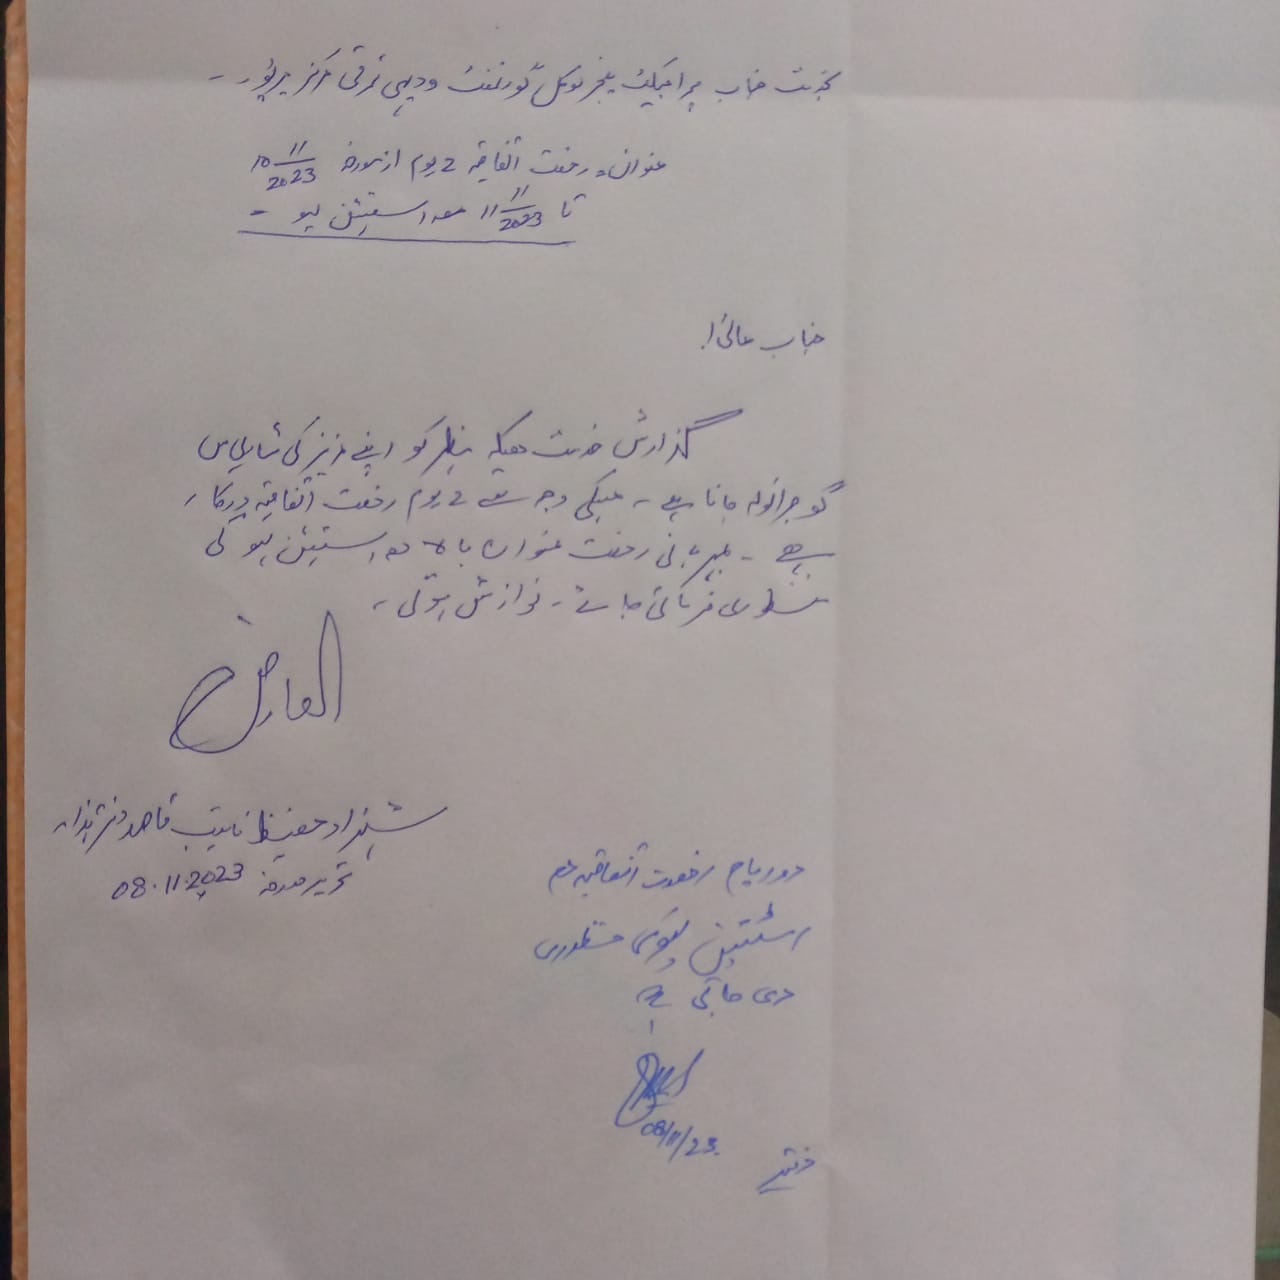 بخدمت جناب پراجیکٹ منیجر لوکل گورنمنٹ و دیہی ترقی مرکز میرپور۔
عنوان۔ رخصت اتفاقیہ 2 یوم از مورخہ 10/11/2023
تا 11/11/2023 معہ اسٹیشن لیو۔
جناب عالی!
گذارش خدمت ہیکہ مظہر کو اپنے عزیز کی شادی میں
گوجرانوالہ جانا ہے۔ جسکی وجہ سے 2 یوم رخصت اتفاقیہ درکار
ہے۔ مہربانی رخصت عنوان بالا معہ اسٹیشن لیو کی
منظوری فرمائی جائے۔ نوازش ہو گی۔
العارض
شہزاد حفیظ نائب قاصد دفتر ہذا۔
تحریر مورخہ 08.11.2023
دو ایام رخصت اتفاقیہ معہ
اسٹیشن لیو کی منظوری
دی جاتی ہے
08/11/23.
دفتر